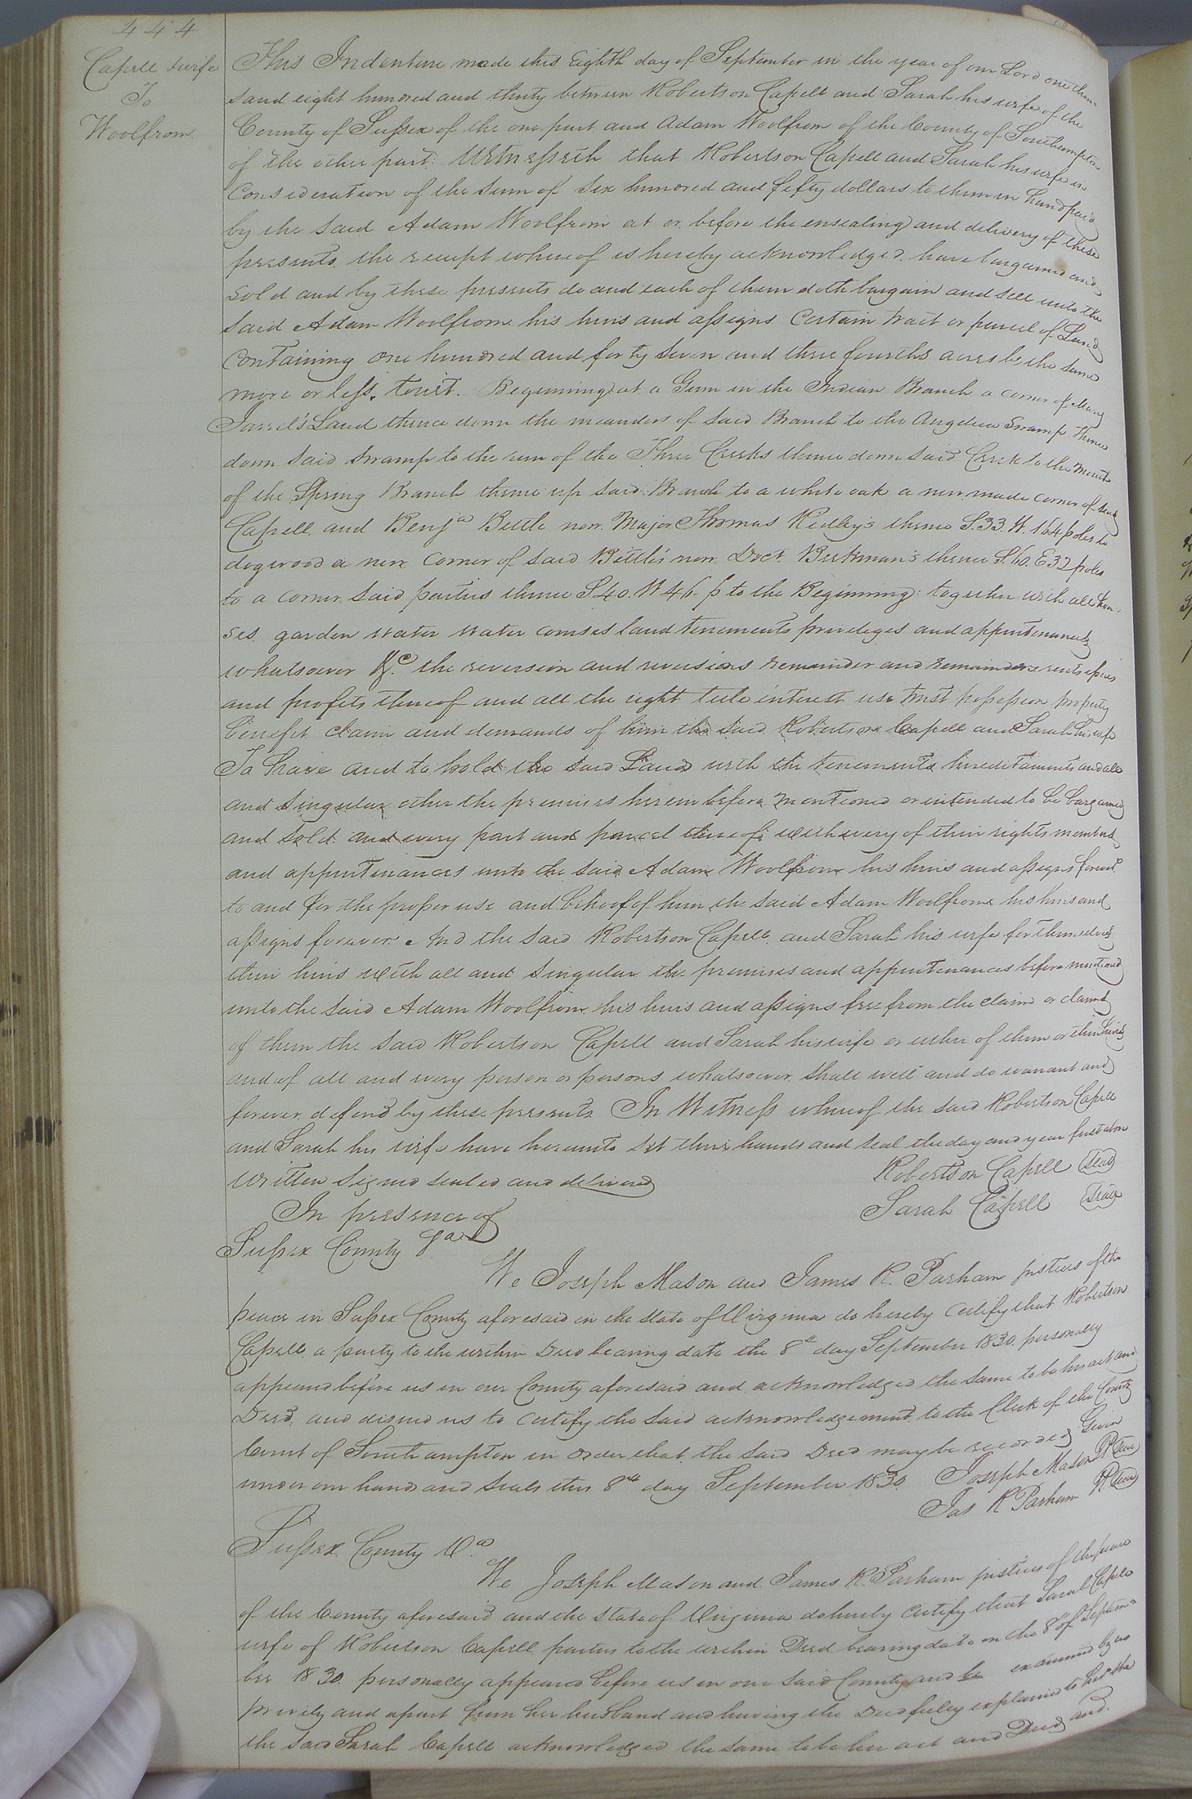 444
Capell & wife
To
Woolfrom
This Indenture made this Eighth day of September in the year of our Lord one thou-
sand eight hundred and thirty between Robertson Capell and Sarah his wife of the
County of Sussex of the one part and Adam Woolfrom of the County of Southampton
of the other part. Witnesseth that Robertson Capell and Sarah his wife in
Consideration of the Sum of six hundred and fifty dollars to them in hand paid
by the said Adam Woolfrom at or before the ensealing and delivery of these
presents the receipt whereof is hereby acknowledged. have bargained and
sold and by these presents do and each of them doth bargain and sell unto the
said Adam Woolfrom his heirs and assigns Certain tract or parcel of Land
Containing one hundred and forty seven and three fourths acres be the same
more or less, towit. Beginning at a Gum in the Indian Branch a corner of
Jarrel's Land thence down the meanders of said Branch to the Angelico Swamp thence
down said Swamp to the run of the Three Creeks thence down said Creek to the mouth
of the Spring Branch thence up said Branch to a white oak a new made corner of said
Capell and Benja Bittle now Major Thomas Ridley's thence S.33.W. 164 poles to
dogwood a new corner of said Bittle's now Doct. thence S.60.E 32 poles
to a corner said parties thence S40.W 46. p to the Beginning: together with all hou-
ses garden water water courses land tenements priviledges and appurtenances
whatsoever &c. the reversion and reversions remainder and remainders rents issues
and profits thereof and all the right title interest use trust possession property
benefit claim and demands of him the said Robertson Capell and Sarah his wife
To have and to hold the said Land with the tenements hereditaments and all
and singular other the premises herein before mentioned or intended to be bargained
and sold and every part and parcel thereof with every of their rights members
and appurtenances unto the said Adam Woolfrom his heirs and assigns forever
to and for the proper use and behoof of him the said Adam Woolfrom his heirs and
assigns forever And the said Robertson Capell and Sarah his wife for themselves
their heirs with all and singular the premises and appurtenances before mentioned
unto the said Adam Woolfrom his heirs and assigns free from the claim or claims
of them the said Robertson Capell and Sarah his wife or either of them or their heirs
and of all and every person or persons whatsoever shall will and do warrant and
forever defend by these presents In Witness whereof the said Robertson Capell
and Sarah his wife have hereunto set their hands and seal the day and year first above
written Signed sealed and delivered Robertson Capell (Seal)
In presence of Sarah Capell (Seal)
Sussex County Va
We Joseph Mason and James R. Parham justices of the
peace in Sussex County aforesaid in the state of Virginia do hereby certify that Robertson
Capell, a party to the within Deed bearing date the 8th day September 1830. personally
appeared before us in our County aforesaid and acknowledged the same to be his act and
Deed, and desired us to certify the said acknowledgement to the Clerk of the County
Court of Southampton in order that the said Deed may be recorded Given
under our hand and seals this 8th day September 1830 Joseph Mason (Seal)
Jas R Parham (Seal)
Sussex County Va.
We Joseph Mason and James R. Parham justices of the peace
of the County aforesaid and the state of Virginia do hereby certify that Sarah Capell
wife of Robertson Capell parties to the within Deed bearing date on the 8th of Septem-
ber 1830. personally appeared before us in our said County and examined by us
privily and apart from her husband and having the Deed fully explained to her she
the said Sarah Capell acknowledged the same to be her act and Deed, and.